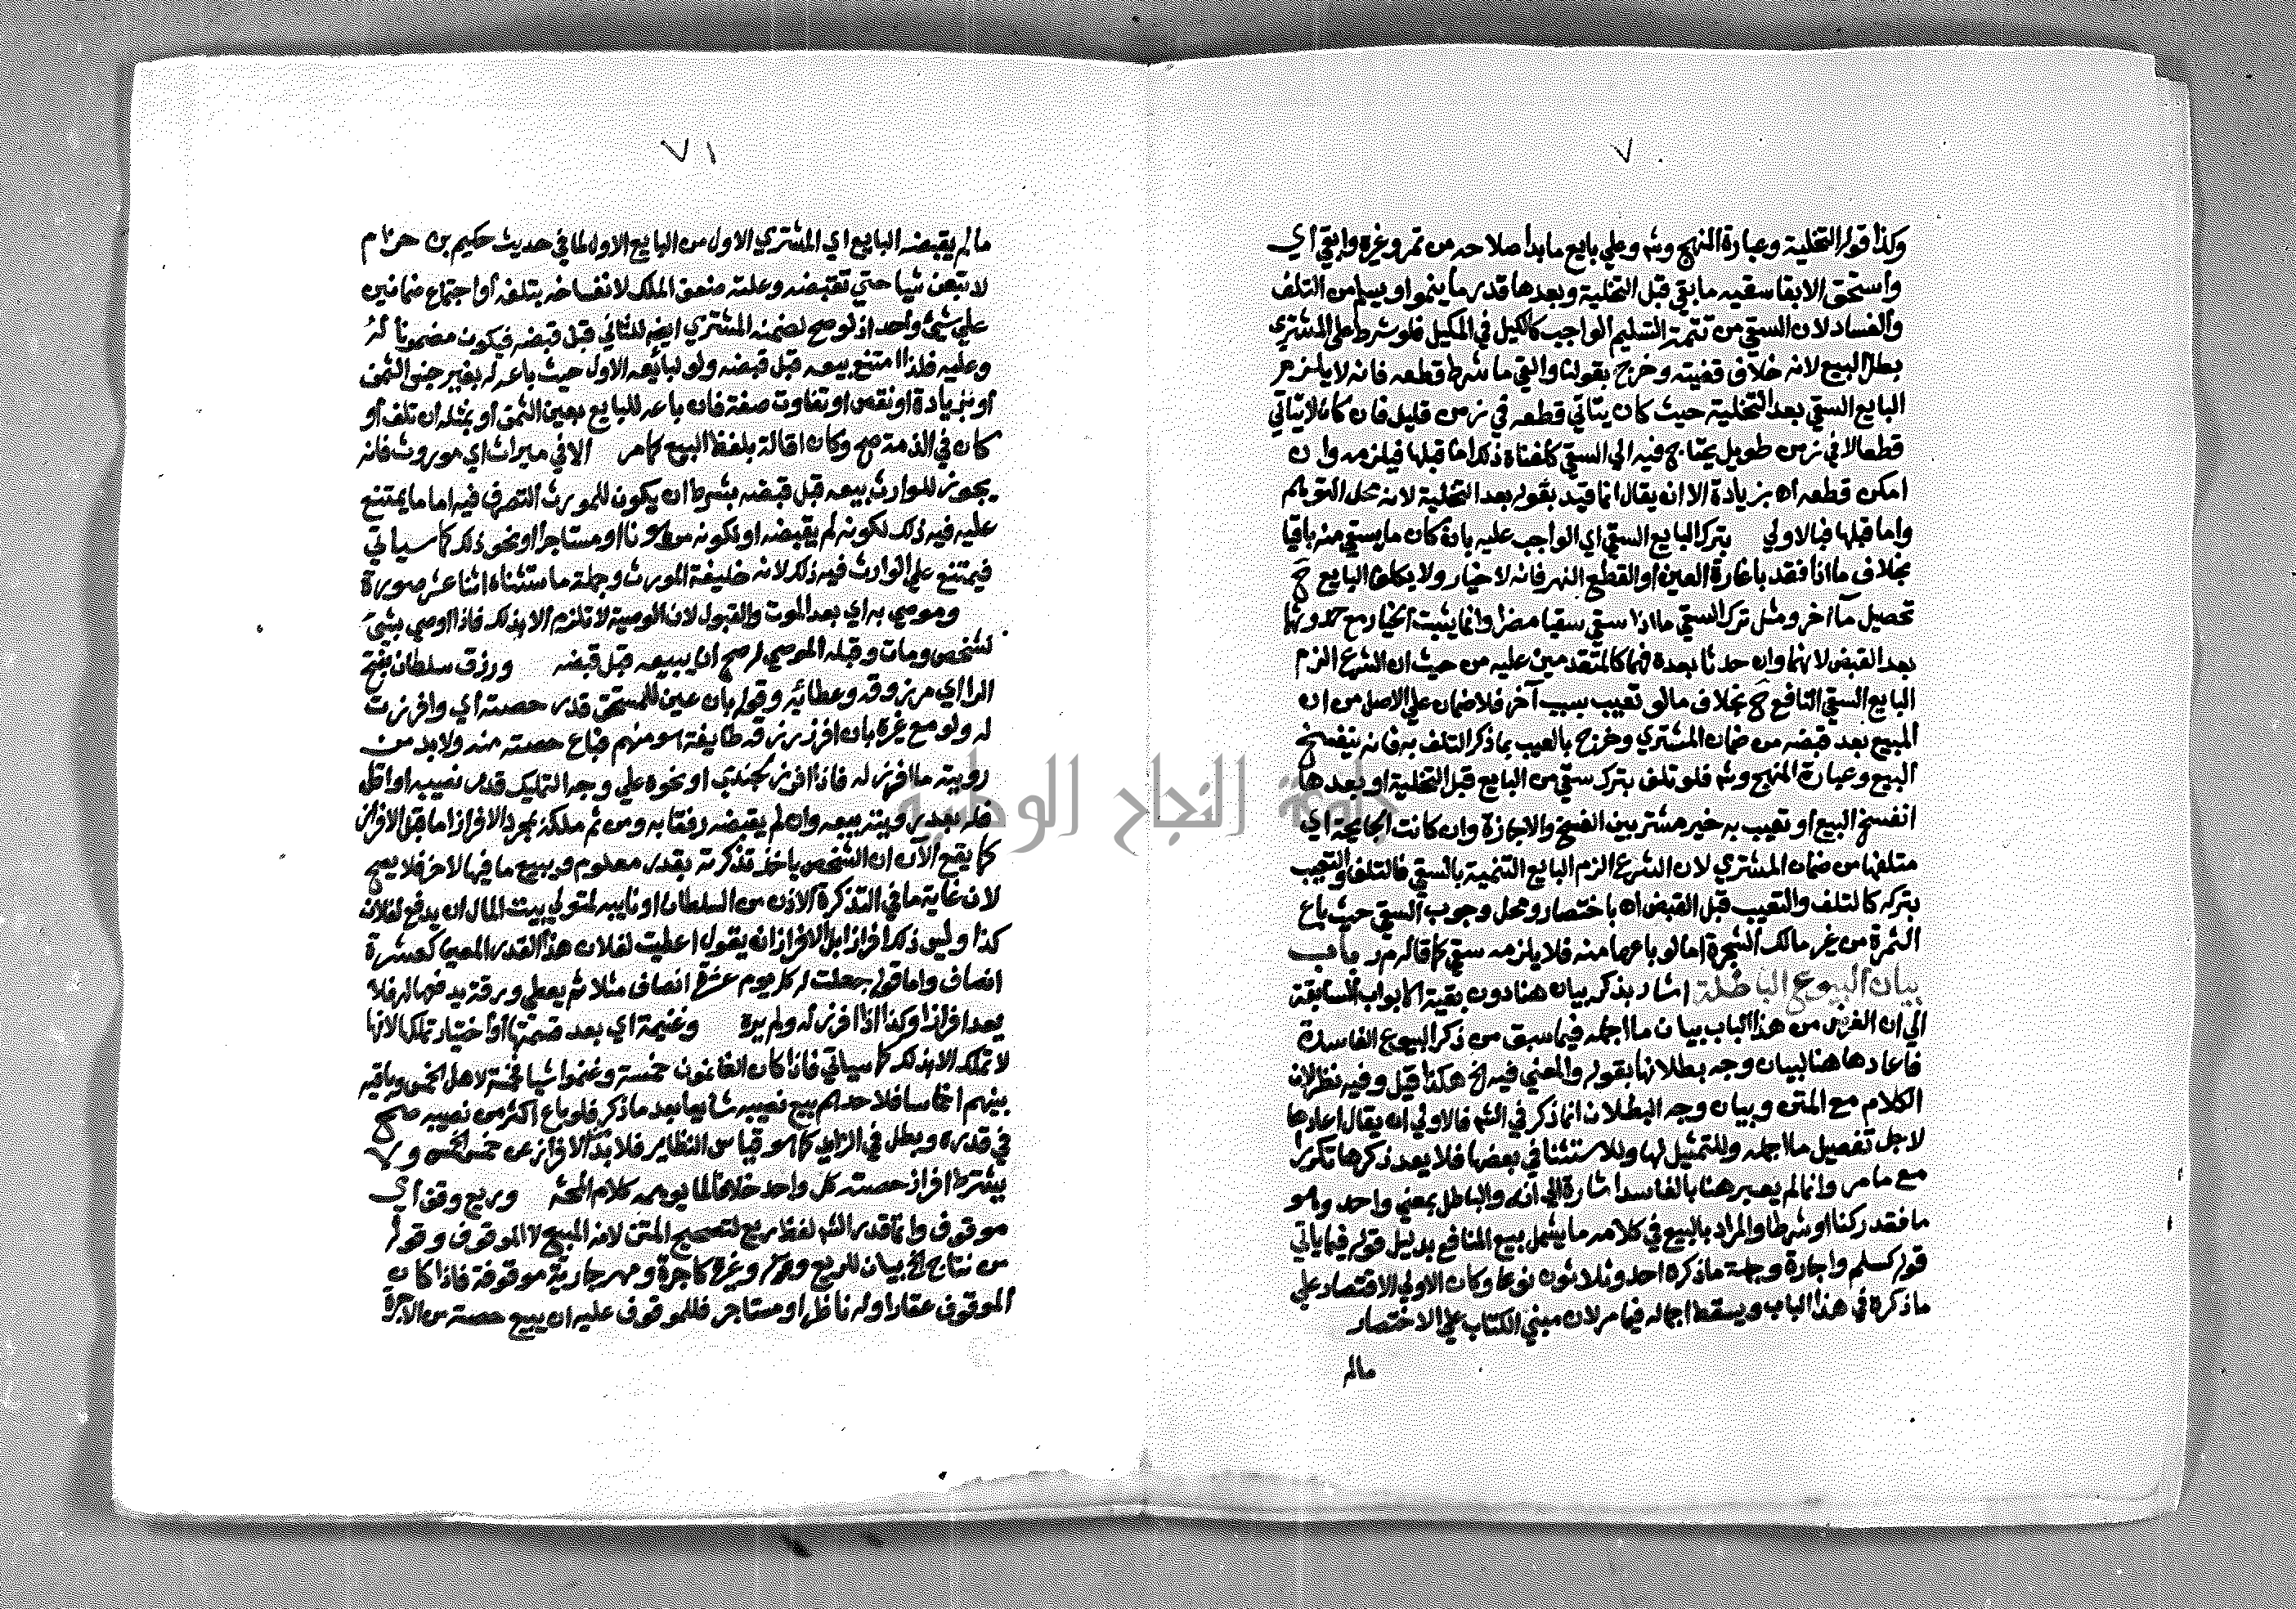 ٧٠
وكذا قوله التخلية وعبارة المنهج وشه وعلي بايع ما بدا صلاحه من ثمر وغيره وابقي اي
واستحق الابقا سقيه ما بقي قبل التخلية وبعدها قدر ما ينموا ويسلم من التلف
والفساد لان السقي من تتمة التسليم الواجب كالكيل في المكيل فلو شرط علي المشتري
بطل البيع لانه خلاف قضيته وخرج بقولنا وابقي ما شرط قطعه فانه لا يلزم
البايع السقي بعد التخلية حيث كان يتاتي قطعه في زمن قليل فان كان لا يتاتي
قطعه الا في زمن طويل يحتاج فيه الي السقي كلفناه ذلك اما قبلها فيلزمه وان
امكن قطعه اه بزيادة الا ان يقال انما قيد بقوله بعد التخلية لانه محل التوهم
واما قبلها فبالاولي بترك البايع السقي اي الواجب عليه بان كان ما يسقي منه باقيا
بخلاف ما اذا فقد باغارة العين او القطع النهر فانه لا خيار ولا يكلف البايع ح
تحصيل ماء اخر ومثل ترك السقي ما اذا سقي سقيا مضرا وانما يثبت الخيار مع حدوثها
بعد القبض لانهما وان حدثا بعده فهما كالمتقدمين عليه من حيث ان الشرع الزم
البايع السقي النافع ح بخلاف ما لو تعيب بسبب آخر فلا ضمان علي الاصل من ان
المبيع بعد قبضه من ضمان المشتري وخرج بالعيب بما ذكر التلف به فانه ينفسخ
البيع وعبارة المنهج وشه فلو تلف بترك سقي من البايع قبل التخلية او بعدها
انفسخ البيع او تعيب به خير مشتر بين الفسخ والاجازة وان كانت الجايحة اي
متلفها من ضمان المشتري لان الشرع الزم البايع التنمية بالسقي فالتلف والتعيب
بتركه كالتلف والتعيب قبل القبض اه باختصار ومحل وجوب السقي حيث باع
الثمرة من غير مالك الشجرة اما لو باعها منه فلا يلزمه سقي كما قاله م ر باب
بيان البيوع الباطلة اشار بذكر بيان هنا دون بقية الابواب السابقة
الي ان الغرض من هذا الباب بيان ما اجمله فيما سبق من ذكر البيوع الفاسدة
فاعادها هنا لبيان وجه بطلانها بقوله والمعني فيه الخ هكذا قيل وفيه نظر لان
الكلام مع المتن وبيان وجه البطلان انما ذكر في الشه فالاولي ان يقال اعادها
لاجل تفصيل ما اجمله وللتمثيل لها وللاستثنا في بعضها فلا يعد ذكرها تكررا
مع ما مر وانما لم يعبر هنا بالفاسد اشارة الي انه والباطل بمعني واحد وهو
ما فقد ركنا او شرطا والمراد بالبيع في كلامه ما يشمل بيع المنافع بدليل قوله فيما ياتي
قوله كسلم واجارة وجملة ما ذكره احد وثلاثون نوعا وكان الاولي الاقتصاد علي
ما ذكره في هذا الباب ويسقط اجماله فيما مر لان مبني الكتاب علي الاختصار
مالم
٧١
مالم يقبضه البايع اي المشتري الاول من البايع الاول لما في حديث حكيم بن حزام
لا تبعن شيا حتي تقبضه وعلته ضعف الملك لانفساخه بتلفه أو اجتماع ضمانين
علي شئ واحد اذ لو صح لضمنه المشتري ايضا للثاني قبل قبضه فيكون مضمونا له
وعليه فلذا امتنع بيعه قبل قبضه ولو لبائعه الاول حيث باعه له بغير جنس الثمن
او بزيادة او نقص او تفاوت صفة فان باعه للبايع بعين الثمن او بمثله ان تلف أو
كان في الذمة صح وكان اقالة بلفظ البيع كما مر الا في ميراث اي موروث فانه
يجوز للوارث بيعه قبل قبضه بشرط ان يكون للمورث التصرف فيه اما ما يمتنع
عليه فيه ذلك لكونه لم يقبضه او لكونه مرهونا او مستاجرا او نحو ذلك كما سياتي
فيمتنع علي الوارث فيه ذلك لانه خليفة المورث وجملة ما ستثناه اثنا عشر صورة
وموصي به اي بعد الموت والقبول لان الوصية لا تلزم الا بذلك فاذا اوصي بشئ
لشخص ومات وقبله الموصي له صح ان يبيعه قبل قبضه ورزق سلطان بفتح
الرا اي مرزوقه وعطائيه وقوله بان عين للمستحق قدر حصته اي وافرزت
له ولو مع غيره بان افرز رزقه طايفة هو منهم فباع حصته منه ولا بد من
روية ما افرز له فاذا افرز لجندي او نحوه علي وجه التمليك قدر نصيبه او اقل
فله بعد رويته بيعه وان لم يقبضه رفقا به ومن ثم ملكه بمجرد الافراز اما قبل الافراز
كما يقع الآن ان الشخص ياخذ تذكرة بقدر معلوم ويبيع ما فيها لاخر فلا يصح
لان غاية ما في التذكرة الاذن من السلطان او نايبه لمتولي بيت المال ان يدفع لفلان
كذا وليس ذلك افراز بل الافراز ان يقول اعطيت لفلان هذا القدر المعين كعشرة
انصاف واما قوله جعلت له كل يوم عشرة انصاف مثلا ثم يعطي ورقة يدفعها له فلا
يعد افرازا وكذا اذا افرز له ولم يره وغنيمة اي بعد قسمتها أو اختيار تملكها لانها
لا تملك الا بذلك كما سياتي فاذا كان الغانمون خمسة وغنموا شيا فخمسه لاهل الخمس وباقيه
بينهم اخماسا فلاحدهم بيع نصيبه شايعا بعد ما ذكر فلو باع اكثر من نصيبه صح
في قدره وبطل في الزايد كما هو قياس النظاير فلا بد من الافراز عن خمس الخمس ولا
يشترط افراز حصته كل واحد خلافا لما يوهمه كلام المحشه وريع وقف اي
موقوف وانما قدر الشه لفظ ريع لتصحيح المتن لانه المبيع لا الموقوف وقوله
من نتاج الخ بيان للريع وقوله وغيره كاجرة ومهر جارية موقوفة فاذا كان
الموقوف عقارا وله ناظر او مستاجر فللموقوف عليه ان يبيع حصته من الاجرة
جامعة النجاح الوطنية